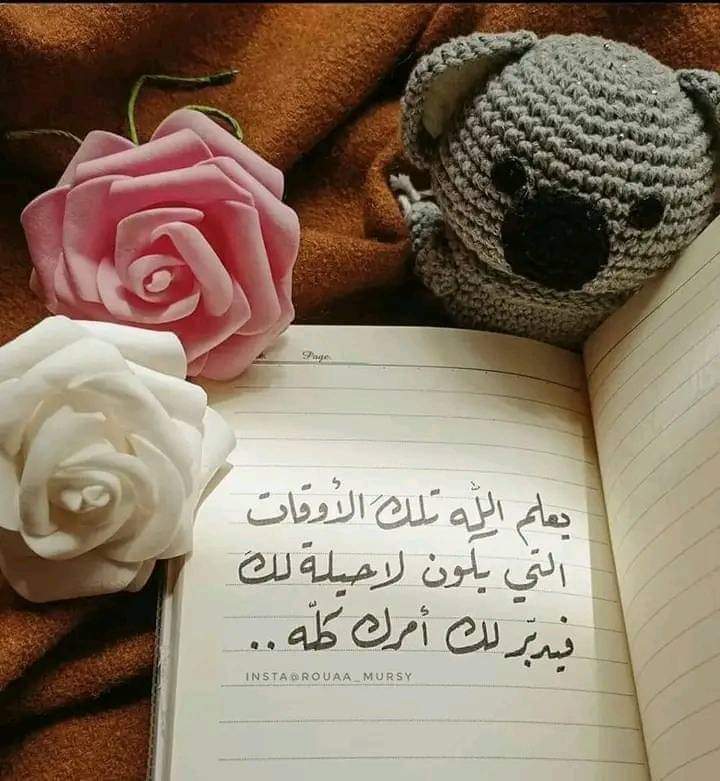 Page.
يعلم اللّه تلكَ الأوقات
التي يكون لا حيلة لكَ
فيدبّر لك أمرك كلّه ..
INSTA@ROUAA_MURSY